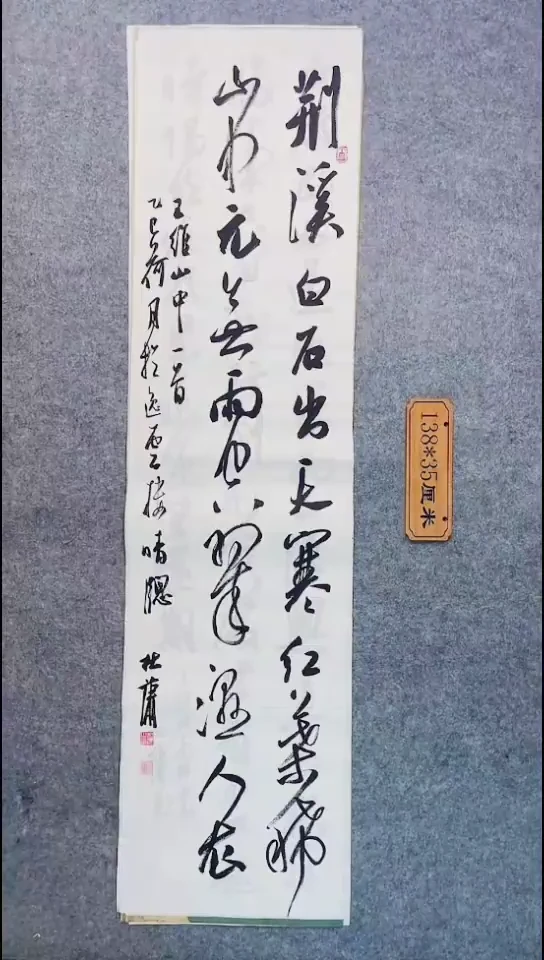 荆溪白石出天寒红葉稀
山中元无雨空翠湿人衣
王维山中一首
乙巳荷月於逸雲楼晴牕
杜萧
138*35厘米